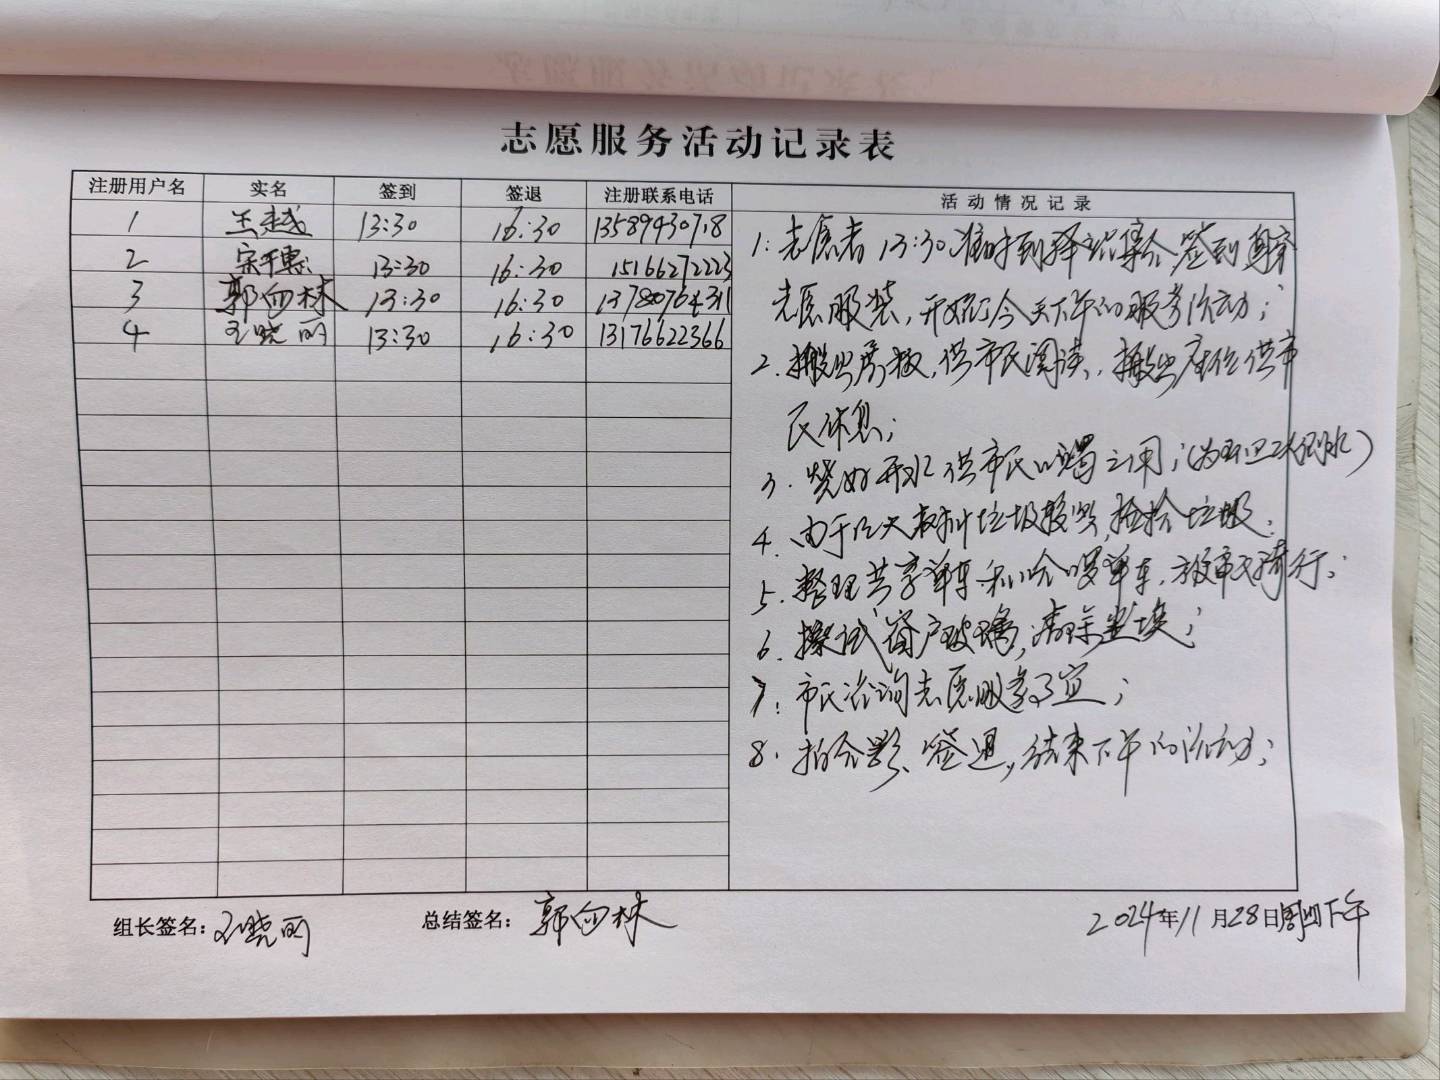 志愿服务活动记录表
注册用户名 实名 签到 签退 注册联系电话 活动情况记录
1 王越 13:30 16:30 13589430718
2 宋 13:30 16:30 15166272223
3 郭向林 13:30 16:30 13780764311
4 王晓丽 13:30 16:30 13176622366
1. 志愿者13:30准时到驿站集合签到身穿
志愿服装,开始了今天下午的服务活动;
2. 搬出展板,供市民阅读,搬出座位供市
民休息;
3. 烧好开水供市民以渴之用;(为环卫工人倒水)
4. 由于 垃圾较多,捡拾垃圾.
5. 整理共享单车和哈啰单车,市民骑行;
6. 擦试窗户玻璃,清除尘埃;
7. 市民咨询志愿服务事宜;
8. 拍合影、签退,结束下午的活动;
组长签名: 王晓丽 总结签名: 郭向林 2024年11月28日周四下午